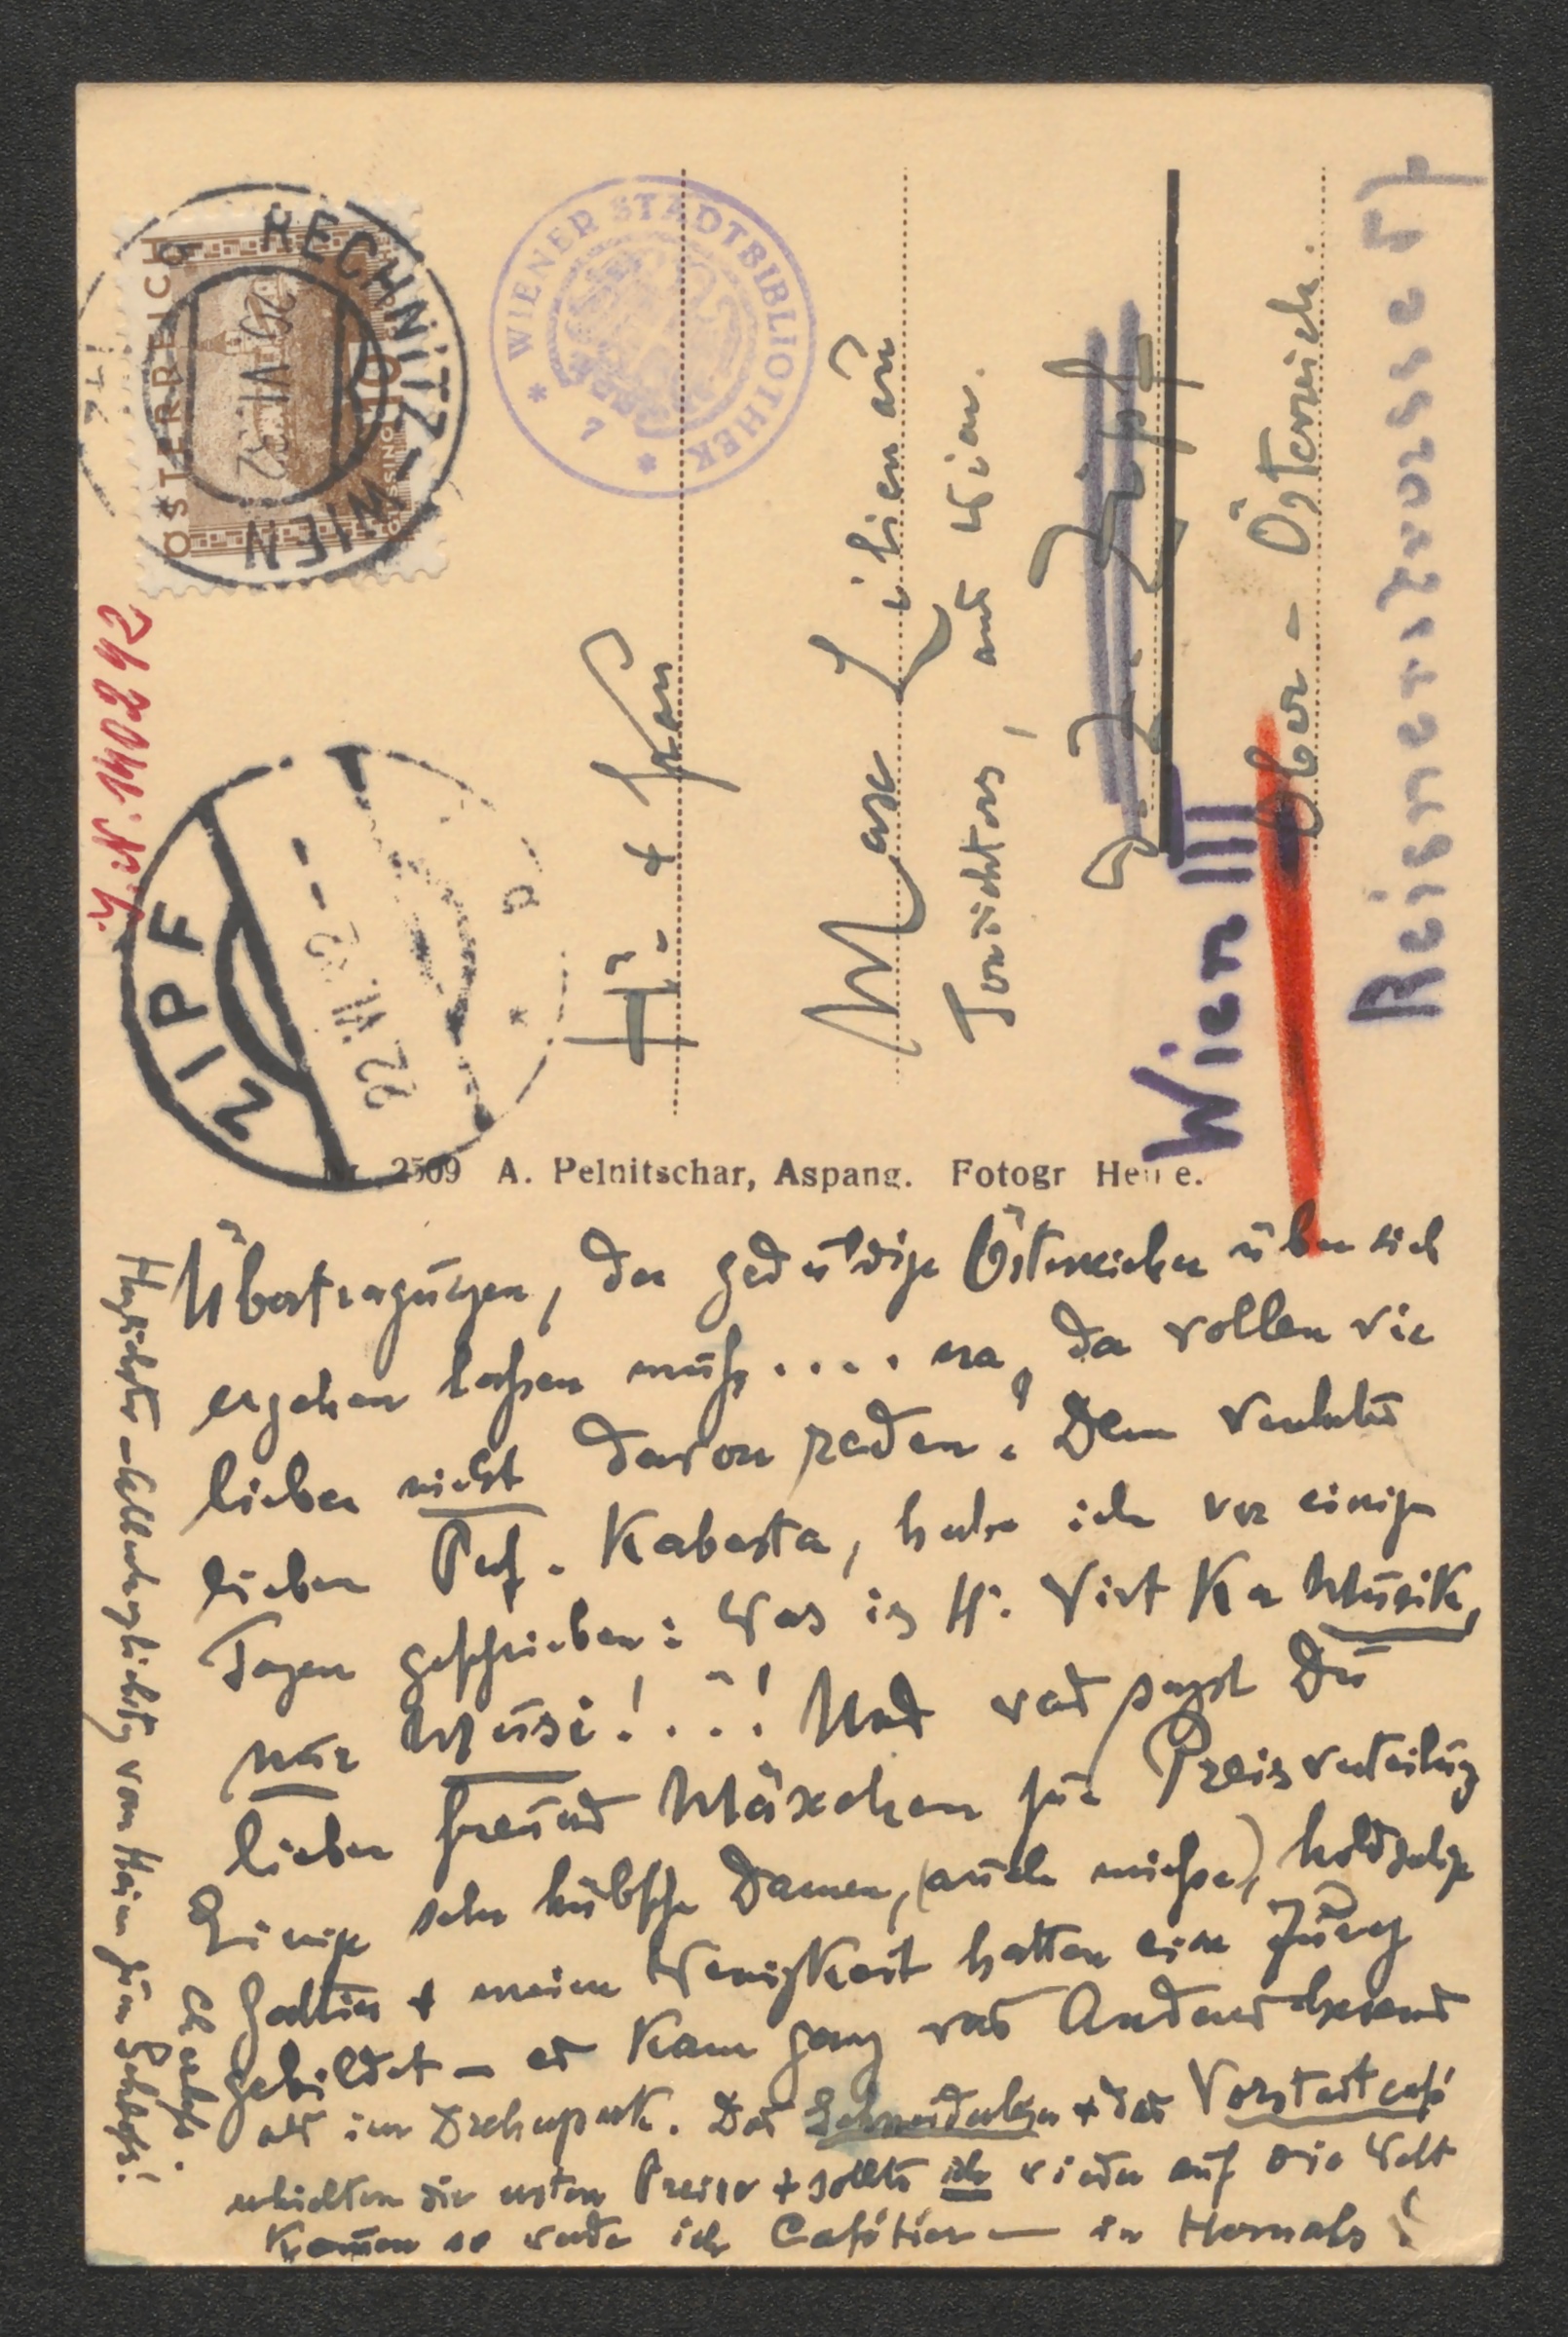 ÖSTERREICH
RECHNITZ - WIEN
29.VI.32
WIENER STADTBIBLIOTHEK
7
ZIPF
H. & Frau
Max Lilienau
Tondichters, aus Wien.
Zipf
Ober-Österreich.
Wien III
Reisnerstrasse 5
2509 A. Pelnitschar, Aspang. Fotogr
Übertragungen, der geduldige Österreicher über sich
ergehen lassen muß.... na, da wollen wir
lieber nicht davon reden! Dem verehrten
lieben Prof. Kabasta, habe ich vor einigen
Tagen geschrieben: Was is H. Wirt Ka Musik,
nur Musi!..! Und was sagst Du
lieber Freund Mäxchen zur Preisverteilung
Einige sehr hübsche Damen, (auch mieße), holdselige
Gattin & meine Wenigkeit hatten eine Jury
gebildet – es kam ganz was Anderes heraus
als im Dreherpark. Das & das Vorstadtcafé
erhielten die ersten Preise & sollte ich wieder auf die Welt
kommen so werde ich Cafétier – in Hernals!
Herzlichst von Heim zu